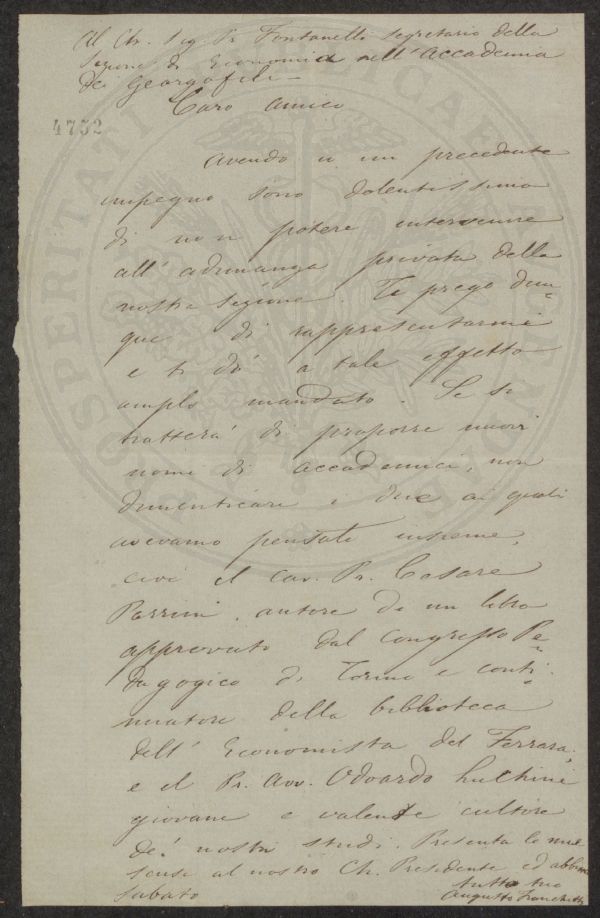 Al Ch. Sig Pr. Fontanelli Segretario della
Sezione di Economia nell'Accademia
de' Georgofili -
Caro amico
4752
avendo un precedente
impegno sono dolentissimo
di non potere intervenire
all'adunanza privata della
nostra Sezione. Ti prego dun-
que di rappresentarmi
e ti dò a tale effetto
ampio mandato. Se si
tratterà di proporre nuovi
nomi di accademici, non
dimenticare i due ai quali
avevamo pensato insieme,
cioè il cav. Pr. Cesare
Parrini, autore di un libro
approvato dal Congresso Pe-
dagogico di Torino e conti-
nuatore della biblioteca
dell'Economista del Ferrara,
e il Pr. Avv. Odoardo Luchini
giovane e valente cultore
de' nostri studi. Presenta le mie
scuse al nostro Ch. Presidente ed abbimi
tutto tuo
Sabato
Augusto Franchetti
PROSPERITATI PUBLICAE AUGENDAE